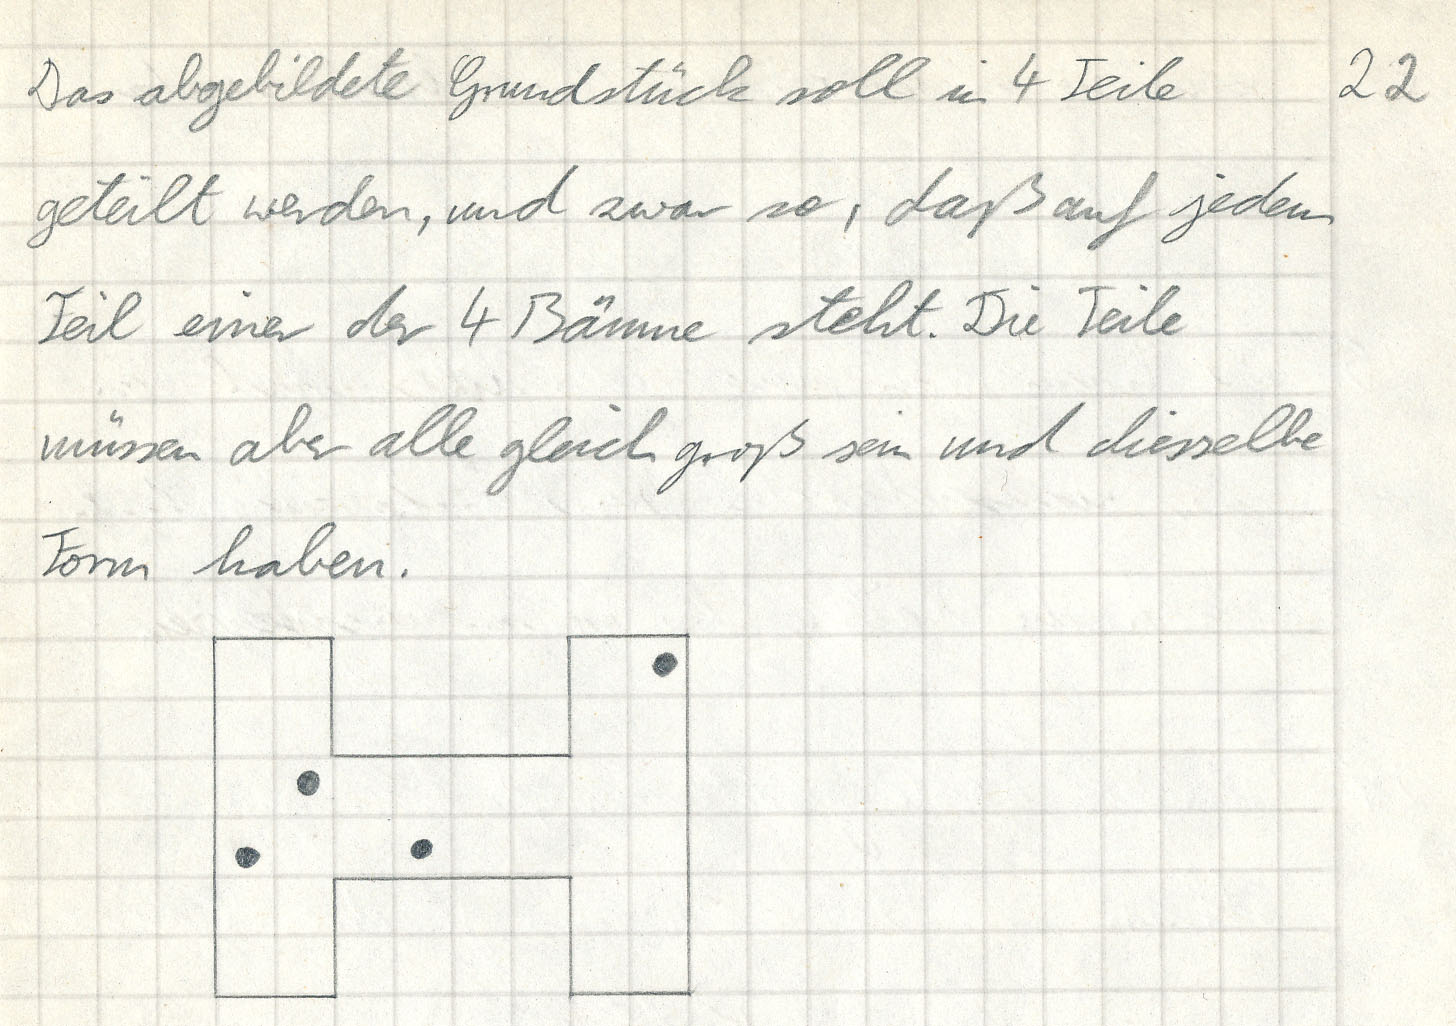 Das abgebildete Grundstück soll in 4 Teile 22
geteilt werden, und zwar so, daß auf jedem
Teil einer der 4 Bäume steht. Die Teile
müssen aber alle gleich groß sein und diesselbe
Form haben.